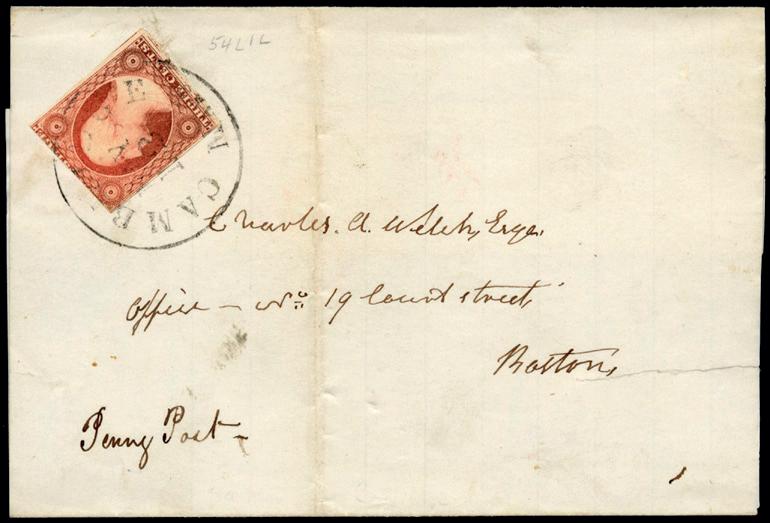 54L1L
THREE CENTS
CAMBRIDGE
Charles. A. Welch, Esqr.
Office – No: 19 Court street
Boston,
Penny Post –